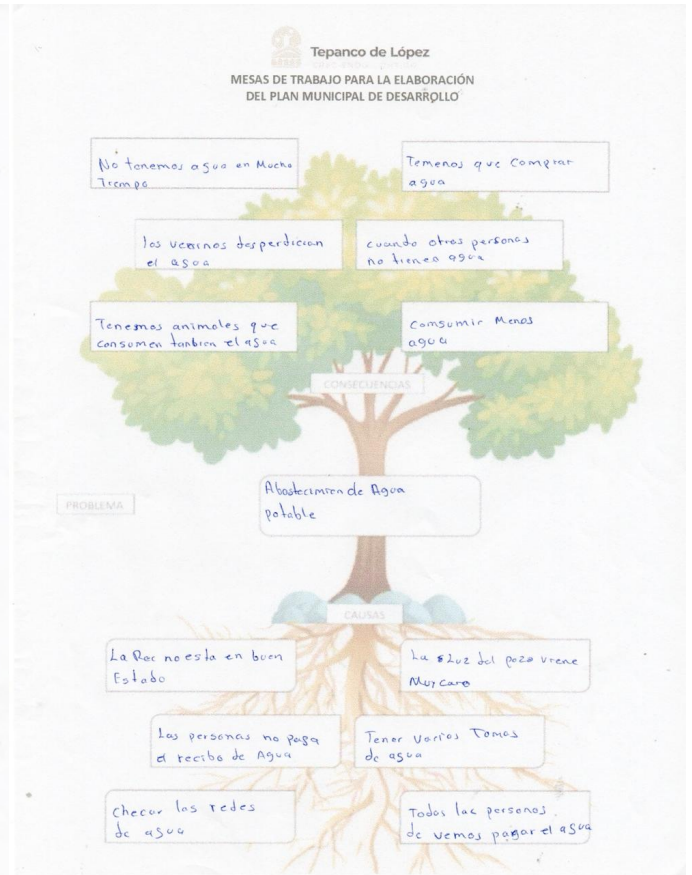 Tepanco de López
MESAS DE TRABAJO PARA LA ELABORACIÓN
DEL PLAN MUNICIPAL DE DESARROLLO
No tenemos agua en Mucho
Tiempo
Temenos que Comprar
agua
los vecinos desperdician
el agua
cuando otras personas
no tienen agua
Tenesmos animales que
consumen tanbien el agua
Comsumir Menos
agua
CONSECUENCIAS
PROBLEMA
Abastecimien de Agua
potable
CAUSAS
La Rec no esta en buen
Estado
La Luz del pozo viene
Muy Caro
Las personas no paga
el recibo de Agua
Tener Varios Tomas
de agua
Checar los redes
de agua
Todas las personas
de vemos pagar el agua